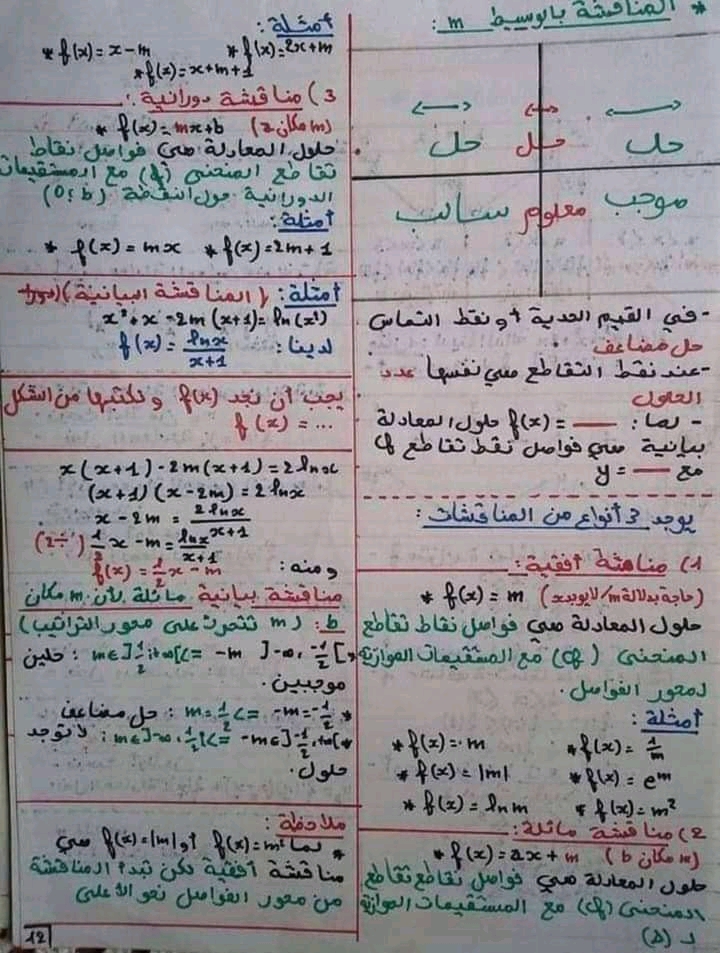 * المناقشة بالوسيط m :
حل
حل
حل
موجب
معلوم
سالب
- في القيم الحدية و نقط التماس
حل مضاعف
- عند نقط التقاطع هي نفسها عدد
الحلول
- لما: ــــ = f(x) حلول المعادلة
بيانية هي فواصل نقط تقاطع Cf
مع ــــ = y
يوجد 3 أنواع من المناقشات :
1) مناقشة أفقية :
* f(x) = m (حاجة بدلالة m/ لا يوجد x)
حلول المعادلة هي فواصل نقاط تقاطع
المنحنى (Cf) مع المستقيمات الموازية
لمحور الفواصل.
أمثلة :
* f(x) = 1/m
* f(x) = m
* f(x) = e^m
* f(x) = |m|
* f(x) = m²
* f(x) = ln m
2) مناقشة مائلة :
* f(x) = ax + m (m مكان b)
حلول المعادلة هي فواصل نقاط تقاطع
المنحنى (Cf) مع المستقيمات الموازية
لـ (Δ)
أمثلة :
* f(x) = 2x + m
* f(x) = x - m
* f(x) = x + m + 1
3) مناقشة دورانية :
* f(x) = mx + b (m مكان a)
حلول المعادلة هي فواصل نقاط
تقاطع المنحنى (Cf) مع المستقيمات
الدورانية حول النقطة (0; b)
أمثلة :
* f(x) = 2m + 1
* f(x) = mx
أمثلة : (المناقشة البيانية)
x² + x - 2m(x+1) = ln(x²)
لدينا: f(x) = lnx/x+1
يجب أن نجد f(x) و نكتبها من الشكل
f(x) = ...
x(x+1) - 2m(x+1) = 2 lnx
(x+1)(x-2m) = 2 lnx
x - 2m = 2 lnx/x+1
(÷2) 1/2 x - m = lnx/x+1
ومنه: f(x) = 1/2 x - m
مناقشة بيانية مائلة لأن m مكان
b : (m تتحرك على محور التراتيب)
m∈]1/2;+∞[ <= -m ]-∞,-1/2[ : حلين
موجبين.
* m = 1/2 <= -m = -1/2 : حل مضاعف
* m∈]-∞,1/2[ <= -m∈]-1/2,+∞[ : لا توجد
حلول.
ملاحظة :
* لما f(x) = m² أو f(x) = |m| هي
مناقشة أفقية لكن تبدأ المناقشة
من محور الفواصل نحو الأعلى
12